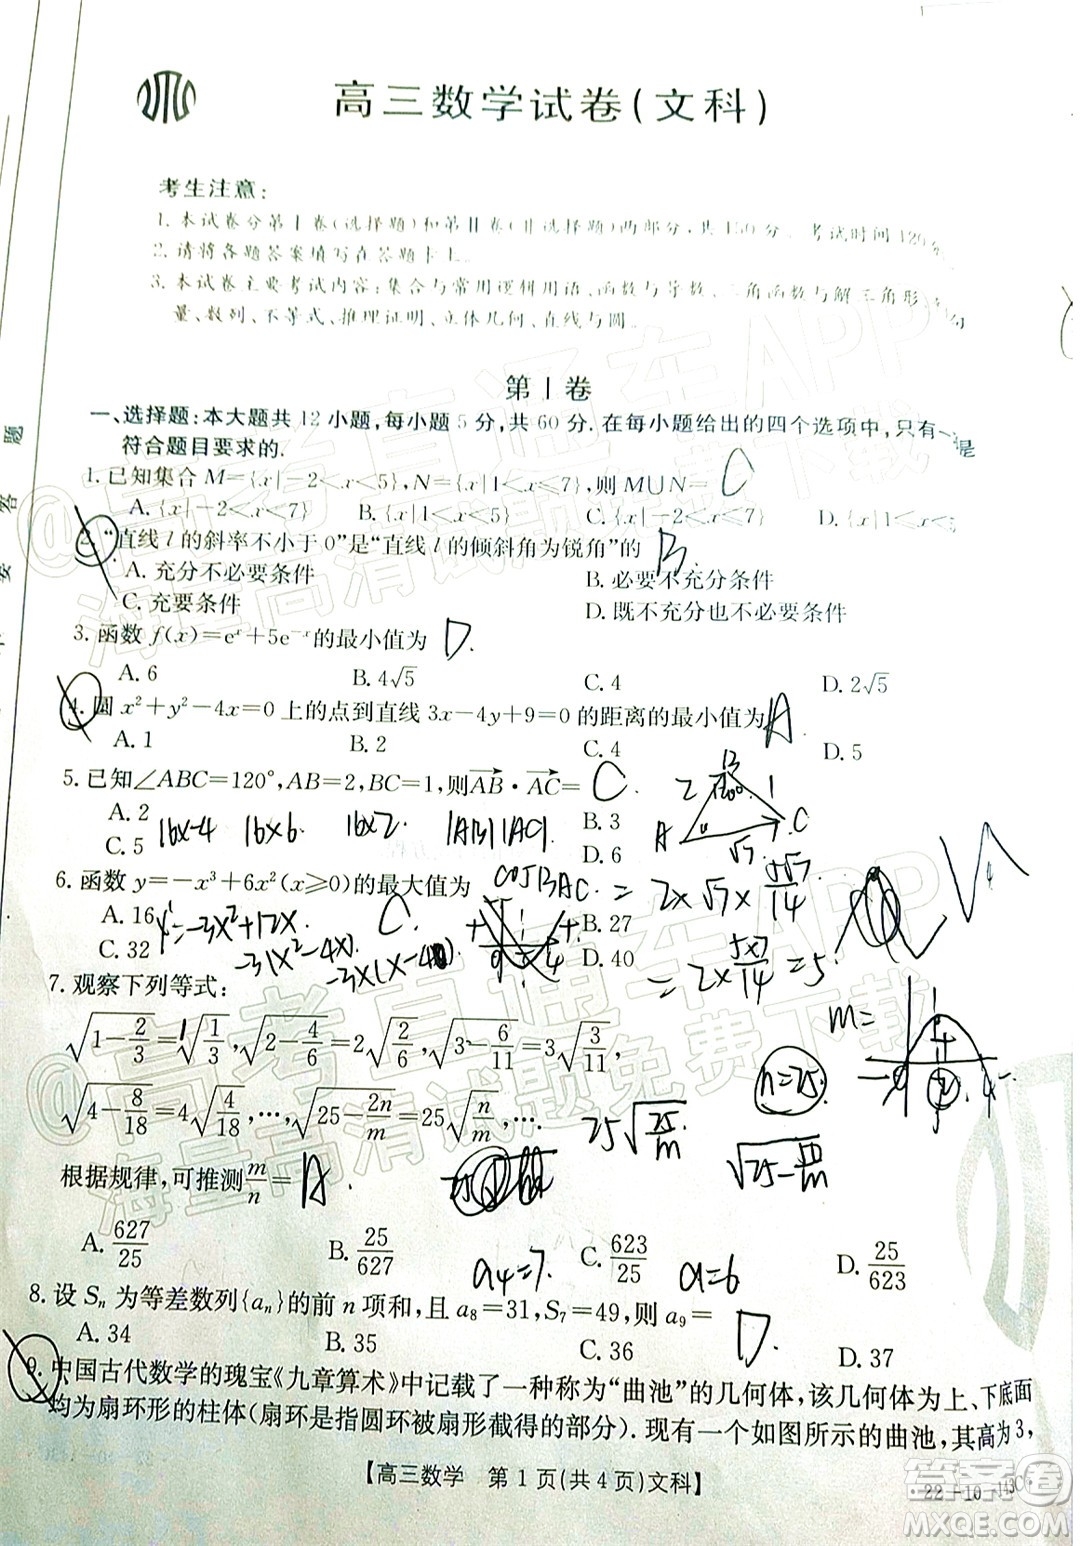 高三数学试卷(文科)
考生注意:
1. 本试卷分第Ⅰ卷(选择题)和第Ⅱ卷(非选择题)两部分,共150分。考试时间120分
2. 请将各题答案填写在答题卡上。
3. 本试卷主要考试内容:集合与常用逻辑用语、函数与导数、三角函数与解三角形、
量、数列、不等式、推理证明、立体几何、直线与圆。
第Ⅰ卷
一、选择题:本大题共12小题,每小题5分,共60分.在每小题给出的四个选项中,只有一 是
符合题目要求的.
1. 已知集合 M={x|-2<x<5},N={x|1<x<7},则 M∪N= C
A. {x|-2<x<7} B. {x|1<x<5} C. {x|-2<x<7} D. {x|1<x<
2. “直线 l 的斜率不小于 0”是“直线 l 的倾斜角为锐角”的 B
A. 充分不必要条件 B. 必要不充分条件
C. 充要条件 D. 既不充分也不必要条件
3. 函数 f(x)=eˣ+5e⁻ˣ的最小值为 D.
A. 6 B. 4√5 C. 4 D. 2√5
4. 圆 x²+y²-4x=0 上的点到直线 3x-4y+9=0 的距离的最小值为 A
A. 1 B. 2 C. 4 D. 5
5. 已知∠ABC=120°,AB=2,BC=1,则AB·AC= C
A. 2 B. 3
C. 5 D. 6
16x-4 16x6. 16x2. |AB||AC|
2 B 120° 1 A C √7
6. 函数 y=-x³+6x²(x≥0)的最大值为 C.
cosBAC. = 2×√7×5√7/14
A. 16 B. 27
C. 32 D. 40
y'=-3x²+12x
-3(x²-4x)
-3x(x-4)
=2×5×7/14=5
7. 观察下列等式:
√(1-2/3)=1√(1/3),√(2-4/6)=2√(2/6),√(3-6/11)=3√(3/11),
√(4-8/18)=4√(4/18),…,√(25-2n/m)=25√(n/m),…
m=
n=25.
25√(25/m)
√(25-50/m)
根据规律,可推测m/n= A
A. 627/25 B. 25/627 C. 623/25 D. 25/623
a₄=7. d=6
8. 设 Sₙ 为等差数列{aₙ}的前 n 项和,且 a₈=31,S₇=49,则 a₉= D.
A. 34 B. 35 C. 36 D. 37
9. 中国古代数学的瑰宝《九章算术》中记载了一种称为“曲池”的几何体,该几何体为上、下底面
均为扇环形的柱体(扇环是指圆环被扇形截得的部分).现有一个如图所示的曲池,其高为3,
【高三数学 第1页(共4页)文科】
22-10-143C
题
答
要
@高考直通车APP
海量高清试题免费下载
答案圈
MXQE.COM